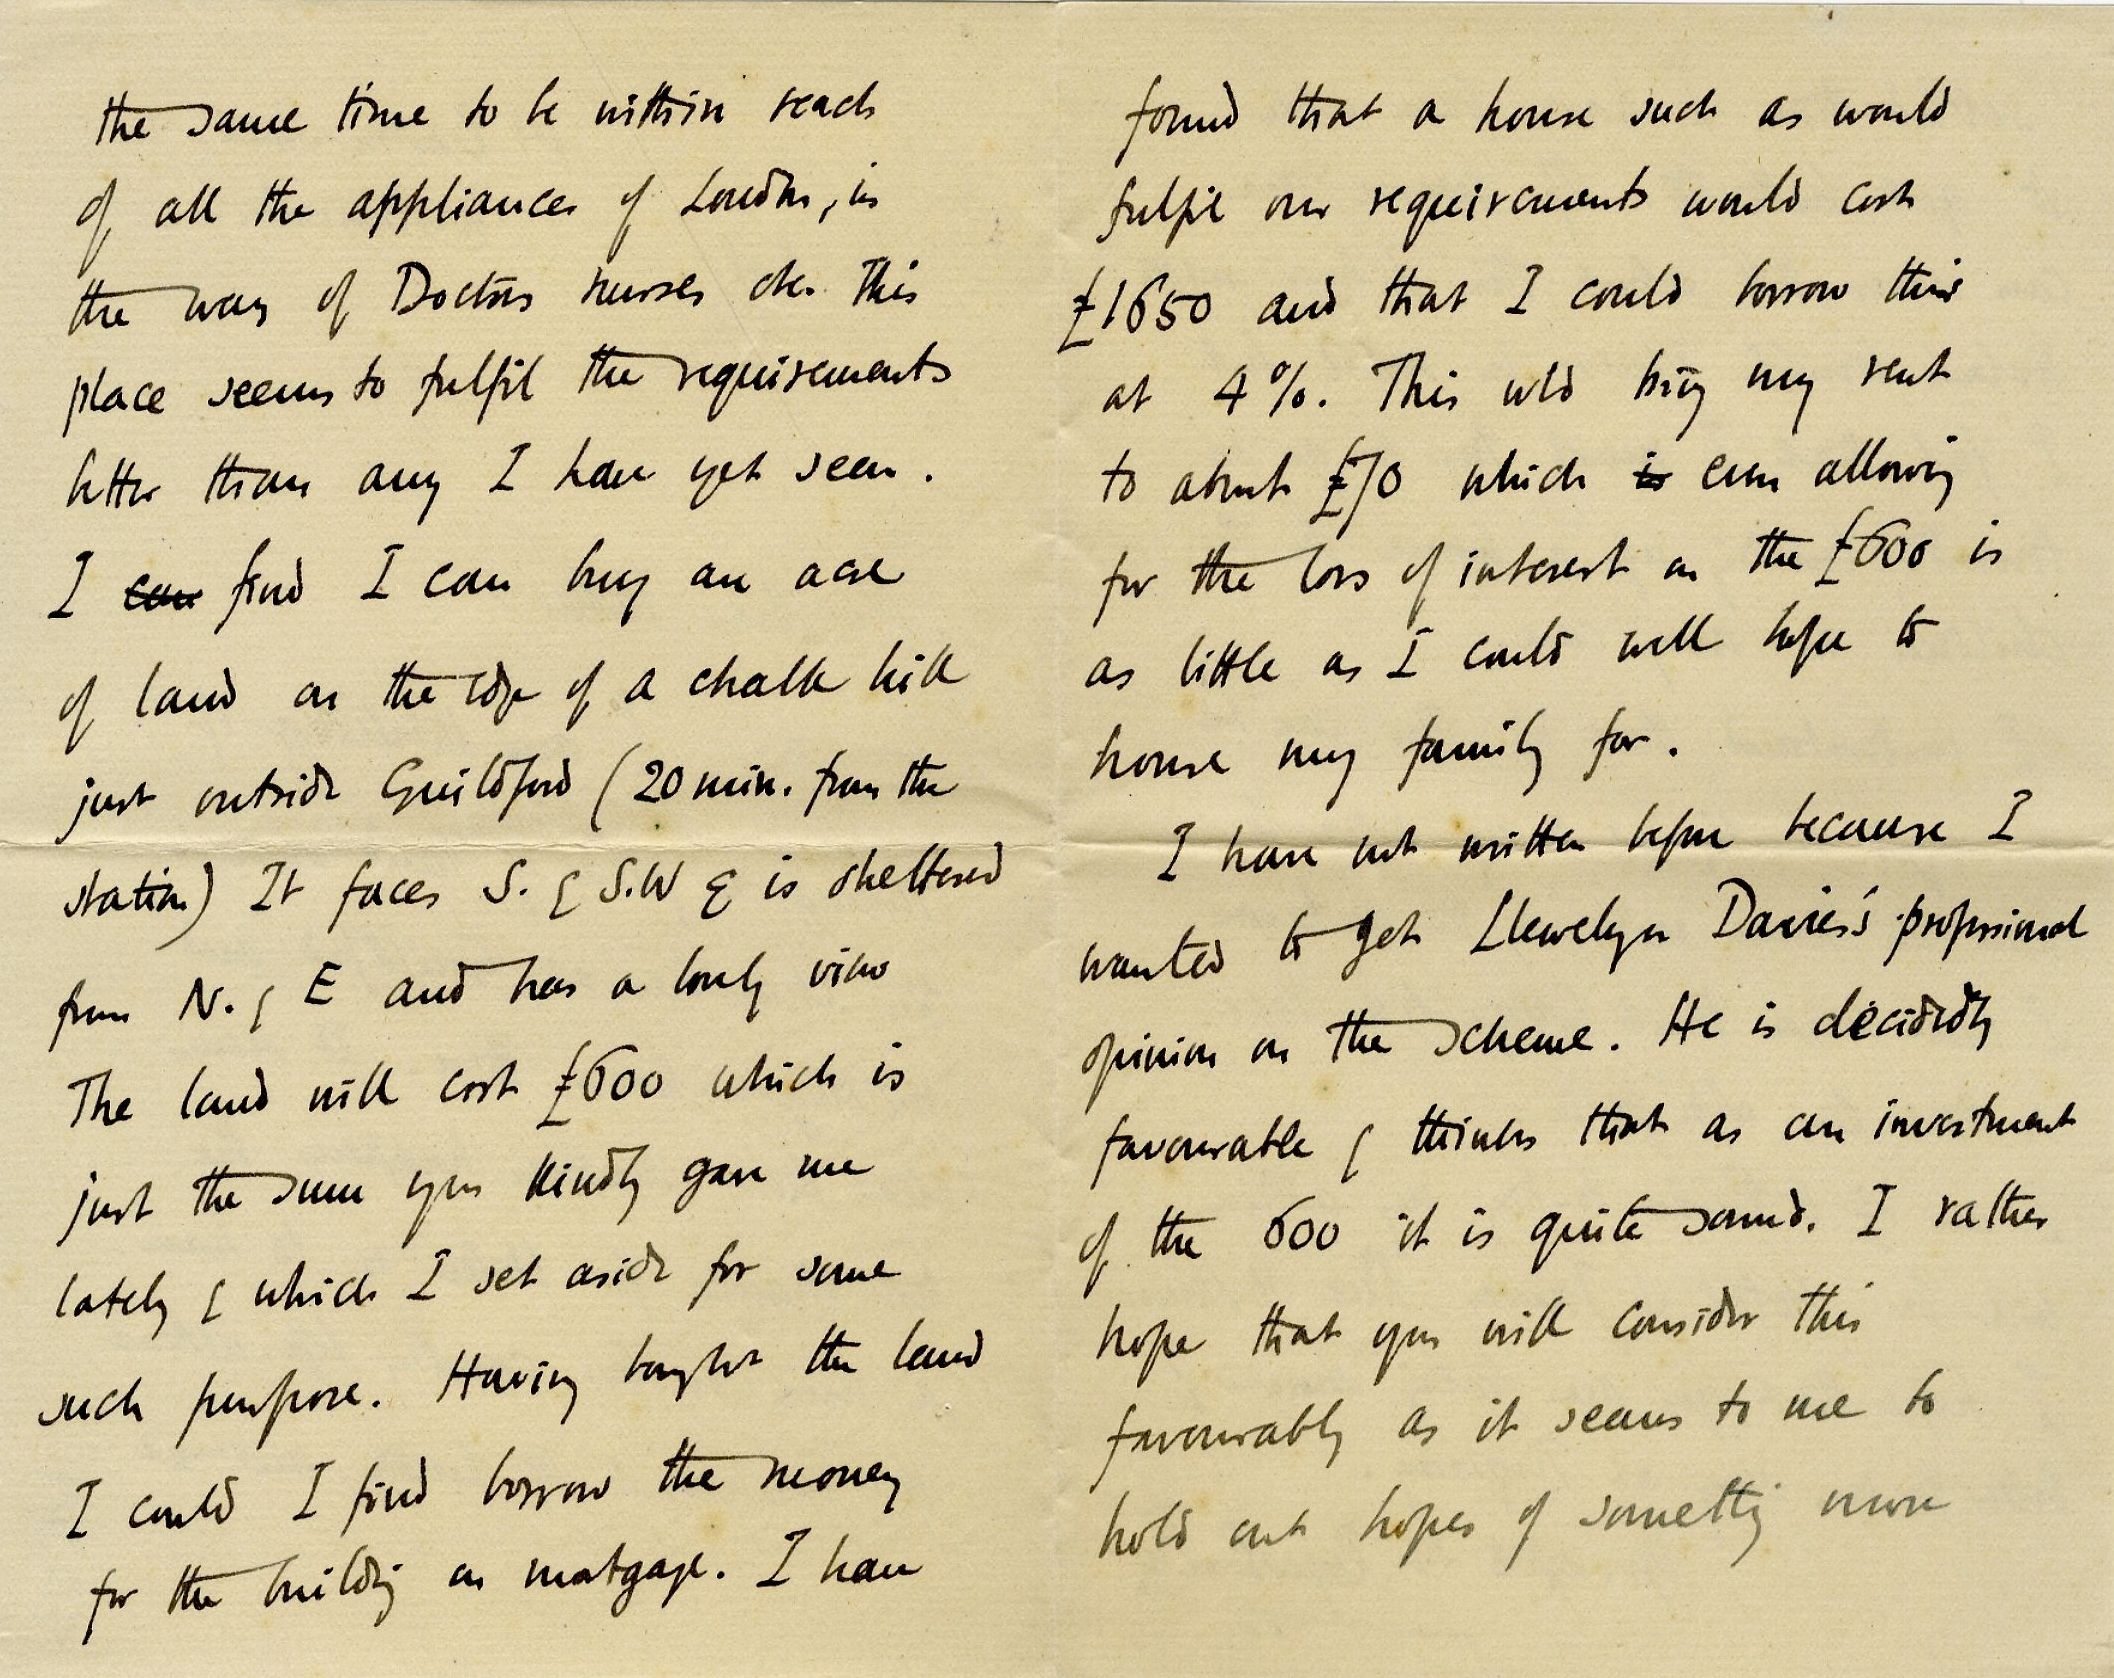 the same time to be within reach
of all the appliances of London, in
the way of Doctors nurses etc. This
place seems to fulfil the requirements
better than any I have yet seen.
I can find I can buy an acre
of land on the edge of a chalk hill
just outside Guildford (20 min. from the
station) It faces S. & S.W & is sheltered
from N. & E and has a lovely view
The land will cost £600 which is
just the sum you kindly gave me
lately & which I set aside for some
such purpose. Having bought the land
I could I find borrow the money
for the building on mortgage. I have
found that a house such as would
fulfil our requirements would cost
£1650 and that I could borrow this
at 4%. This wld bring my rent
to about £70 which is even allowing
for the loss of interest on the £600 is
as little as I could well hope to
house my family for.
I have not written before because I
wanted to get Llewelyn Davies's professional
opinion on the scheme. He is decidedly
favourable & thinks that as an investment
of the 600 it is quite sound. I rather
hope that you will consider this
favourably as it seems to me to
hold out hopes of something more